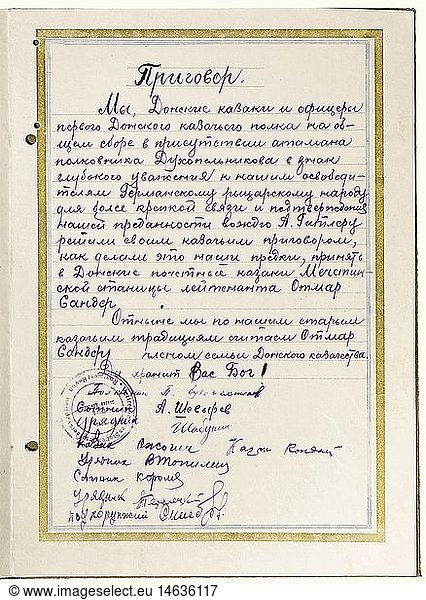 Приговор.
Мы, Донские казаки и офицеры
первого Донского казачьего полка на об-
щем сборе в присутствии атамана
полковника Духопельникова в знак
глубокого уважения к нашим освободи-
телям Германскому рыцарскому народу
для более крепкой связи и подтверждения
нашей преданности вождю А. Гитлеру
решили своим казачьим приговором,
как делали это наши предки, принять
в Донские почетные казаки Мечетин-
ской станицы лейтенанта Отмар
Сандер.
Отныне мы по нашим старым
казачьим традициям считаем Отмар
Сандеру членом семьи Донского казачества.
Да хранит Вас Бог!
Сотник А. Шевырев
Урядник
казак
Урядник
Сотник Королев
Урядник
подхорунжий
alamy
Image ID: 14636117
www.alamy.com